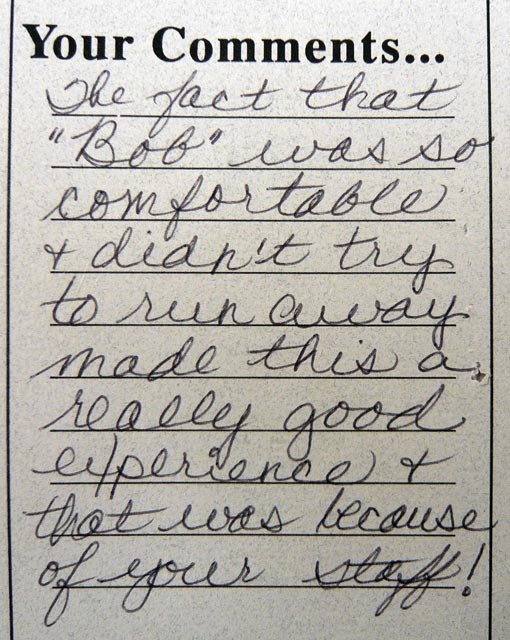 Your Comments...
The fact that
"Bob" was so
comfortable
& didn't try
to run away
made this a
really good
experience &
that was because
of your staff!